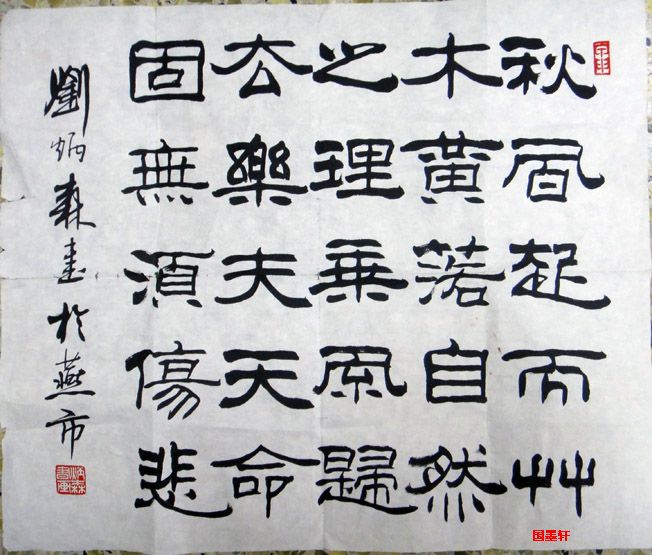 秋風起而艸
木黃落自然
之理乗風歸
公樂夫天命
固無須傷悲
劉炳森書於燕市
国墨轩